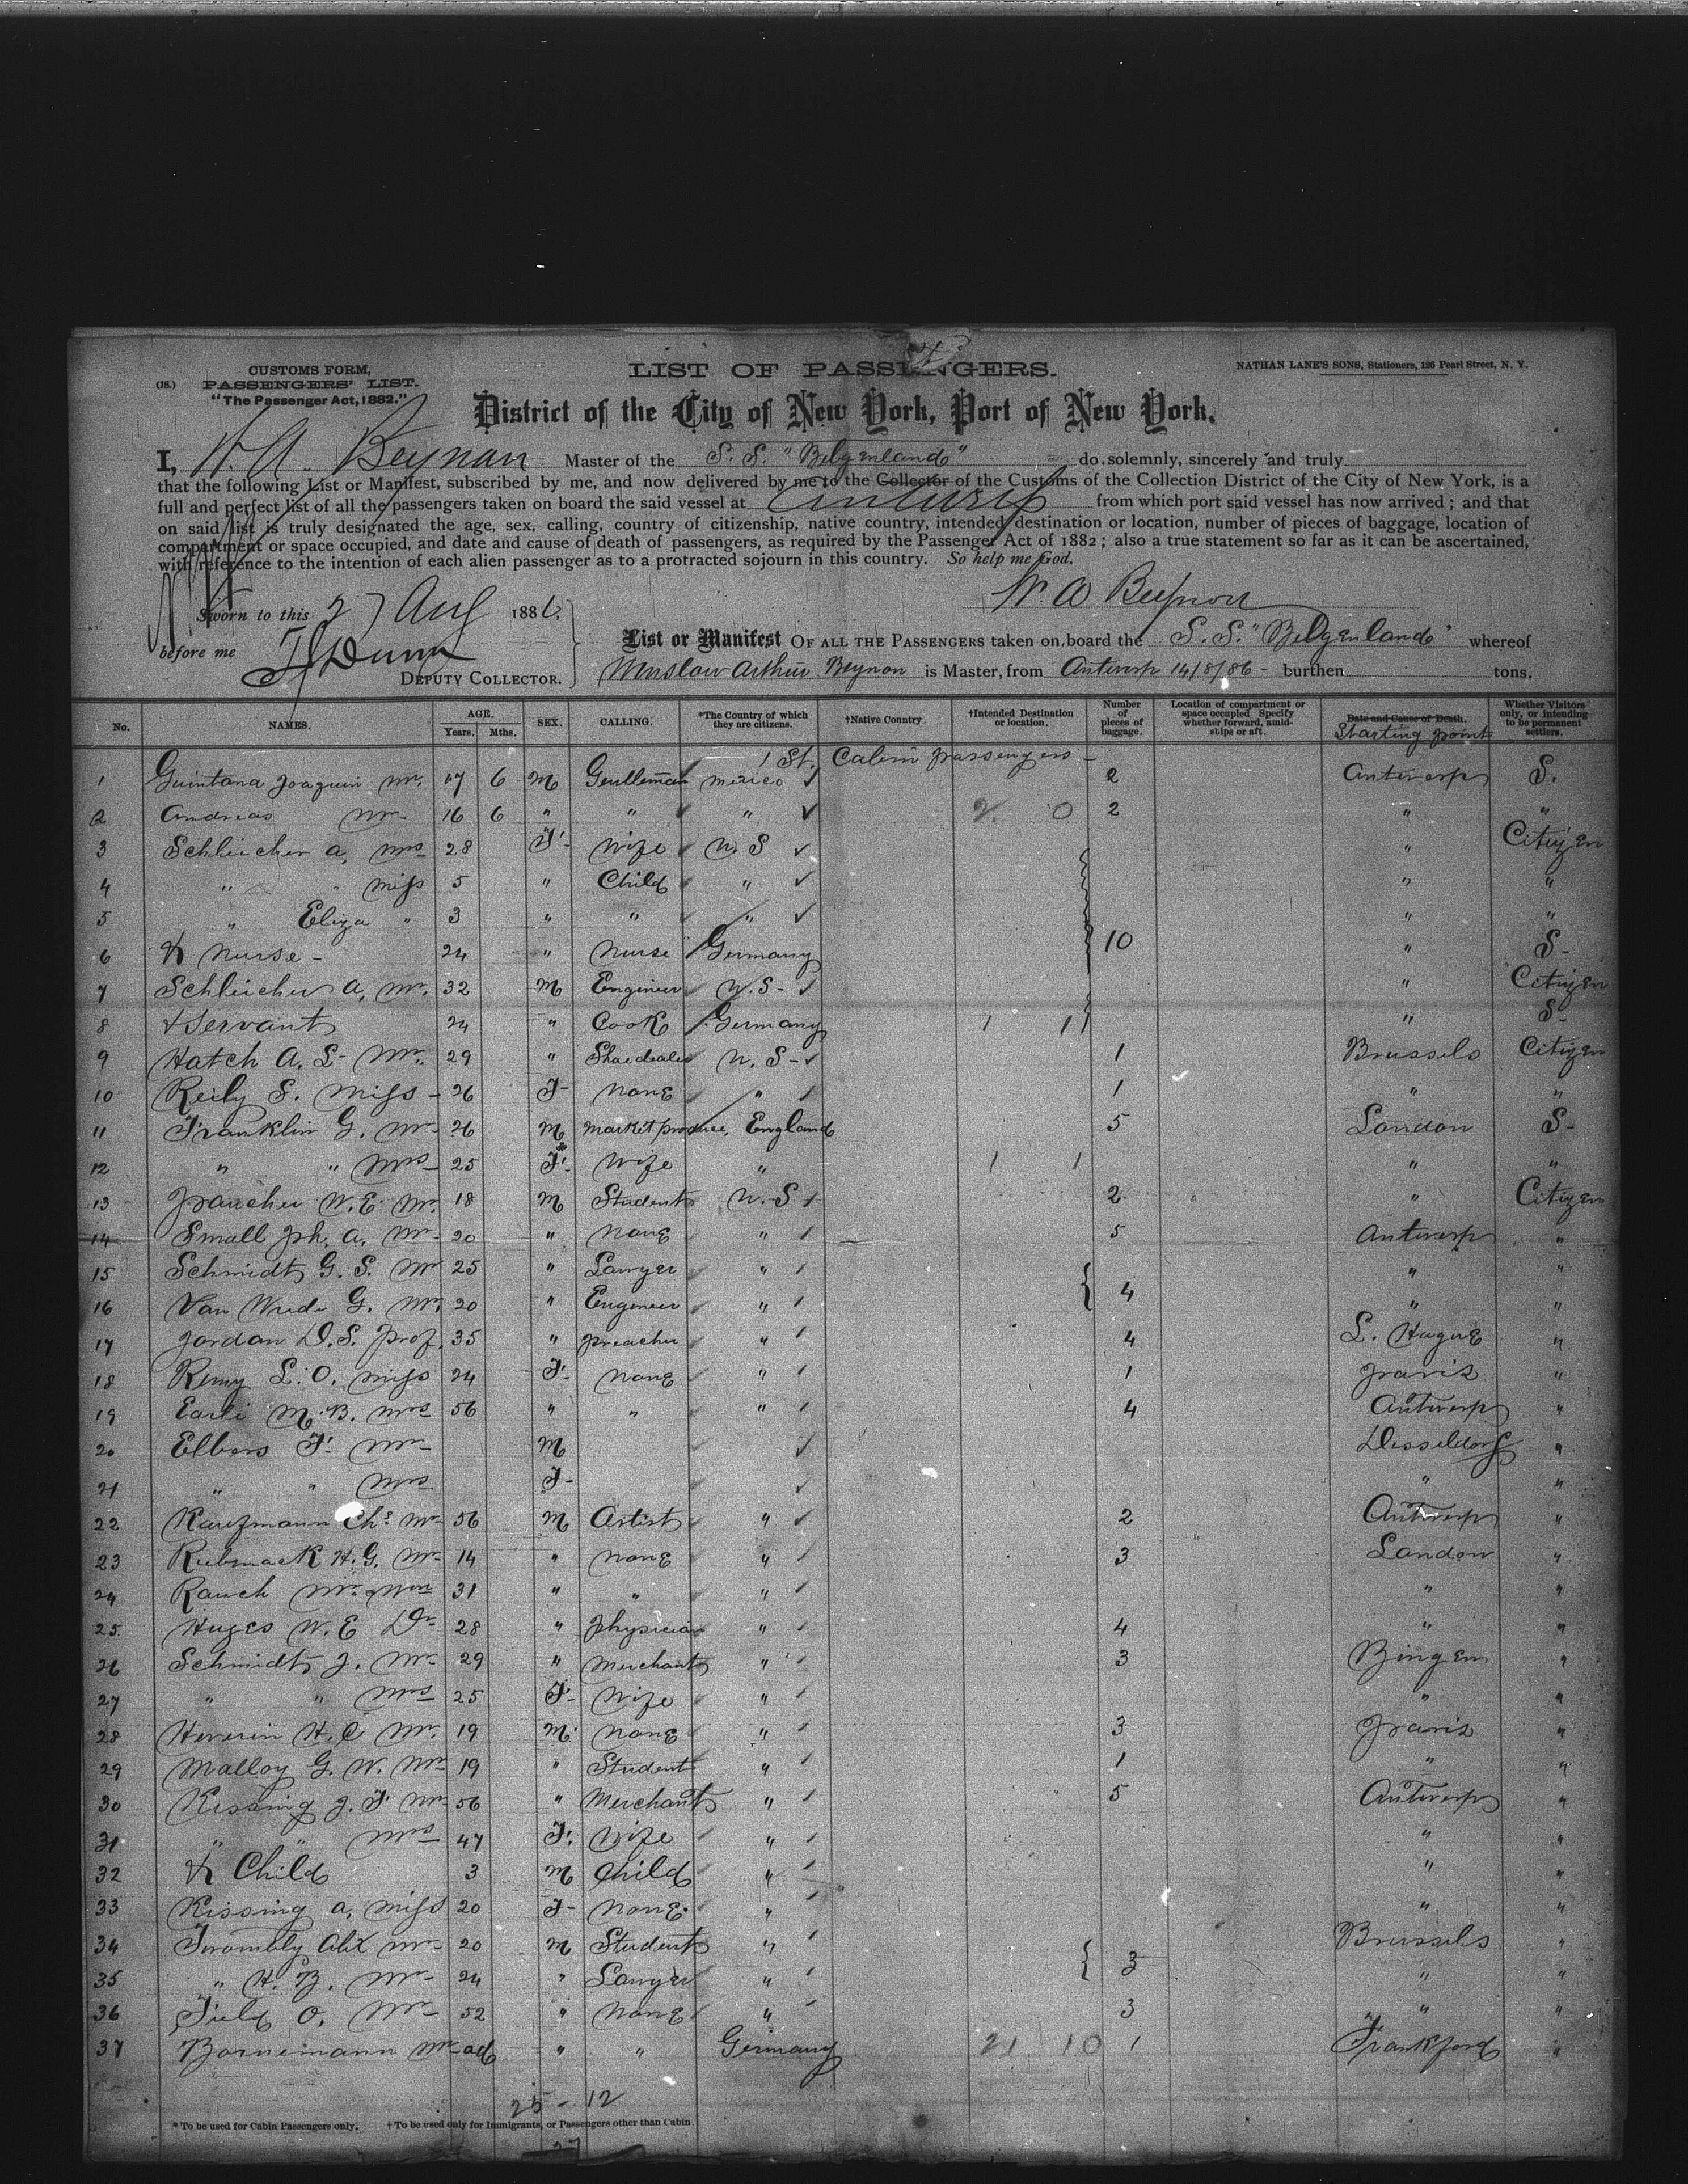 CUSTOMS FORM,
(18.) PASSENGERS' LIST.
"The Passenger Act, 1882."
LIST OF PASSENGERS.
NATHAN LANE'S SONS, Stationers, 126 Pearl Street, N. Y.
District of the City of New York, Port of New York.
I, W. A. Beynon Master of the S. S. "Belgenland" do solemnly, sincerely and truly
that the following List or Manifest, subscribed by me, and now delivered by me to the Collector of the Customs of the Collection District of the City of New York, is a
full and perfect list of all the passengers taken on board the said vessel at Antwerp from which port said vessel has now arrived; and that
on said list is truly designated the age, sex, calling, country of citizenship, native country, intended destination or location, number of pieces of baggage, location of
compartment or space occupied, and date and cause of death of passengers, as required by the Passenger Act of 1882; also a true statement so far as it can be ascertained,
with reference to the intention of each alien passenger as to a protracted sojourn in this country. So help me God.
W. A Beynon
Sworn to this 27 Aug 1886.
before me Dunn
DEPUTY COLLECTOR.
List or Manifest OF ALL THE PASSENGERS taken on board the S. S. "Belgenland" whereof
Winslow Arthur Beynon is Master, from Antwerp 14/8/86 - burthen tons.
No. NAMES. AGE. Years. Mths. SEX. CALLING. *The Country of which they are citizens. †Native Country. †Intended Destination or location. Number of pieces of baggage. Location of compartment or space occupied Specify whether forward, amidships or aft. Date and Cause of Death. Starting point Whether Visitors only, or intending to be permanent settlers.
1 St. Cabin passengers -
1 Quintana Joaquin Mr. 17 6 M Gentleman Mexico 2 Antwerp S.
2 Andreas Mr- 16 6 " " " 2 0 2 " "
3 Schleicher A, Mrs 28 F- Wife U. S " Citizen
4 " " Miss 5 " Child " " "
5 " Eliza " 3 " " " " "
6 & Nurse - 24 " Nurse Germany 10 " S-
7 Schleicher A, Mr. 32 M Engineer U. S- " Citizen
8 & Servant 24 " Cook Germany 1 1 " S-
9 Hatch A. S- Mr. 29 " U. S- 1 Brussels Citizen
10 Reily S. Miss - 26 F- None " 1 " "
11 Franklin G. Mr- 26 M England 5 London S-
12 " " Mrs- 25 F- Wife " 1 1 " "
13 W. E. Mr. 18 M Student U. S 2 " Citizen
14 Small Jph. A, Mr- 20 " None " 5 Antwerp "
15 Schmidt G. S. Mr 25 " Lawyer " " "
16 Van G. Mr. 20 " Engineer " 4 " "
17 Jordan D. S. Prof. 35 " Preacher " 4 L. Hague "
18 Remy L. O. Miss 24 F- None " 1 Paris "
19 Earli M. B. Mrs 56 " " " 4 Antwerp "
20 Elbers F. Mr- M Dusseldorf "
21 " " Mrs F- " "
22 Kaufmann Chs Mr- 56 M Artist " 2 Antwerp "
23 H. G. Mr- 14 " None " 3 London "
24 Rauch Mr. Wm 31 " " " " "
25 Huges W. E Dr 28 " Physician " 4 " "
26 Schmidt J. Mr- 29 " Merchant " 3 Bingen "
27 " " Mrs 25 F- Wife " " "
28 Heverin H. C Mr. 19 M. None " 3 Paris "
29 Malloy G. W. Mr- 19 " Student " 1 " "
30 Kissing J. F Mr- 56 " Merchant " 5 Antwerp "
31 " " Mrs 47 F. Wife " " "
32 & Child 3 M Child " " "
33 Kissing A, Miss 20 F- None. " " "
34 Twombly Alex Mr- 20 M Student " Brussels "
35 " H. B. Mr- 24 " Lawyer " 3 " "
36 Field O, Mr- 52 " None " 3 " "
37 Bornemann Mr- ad " " Germany 21 10 1 Frankford "
25 - 12
* To be used for Cabin Passengers only. † To be used only for Immigrants, or Passengers other than Cabin